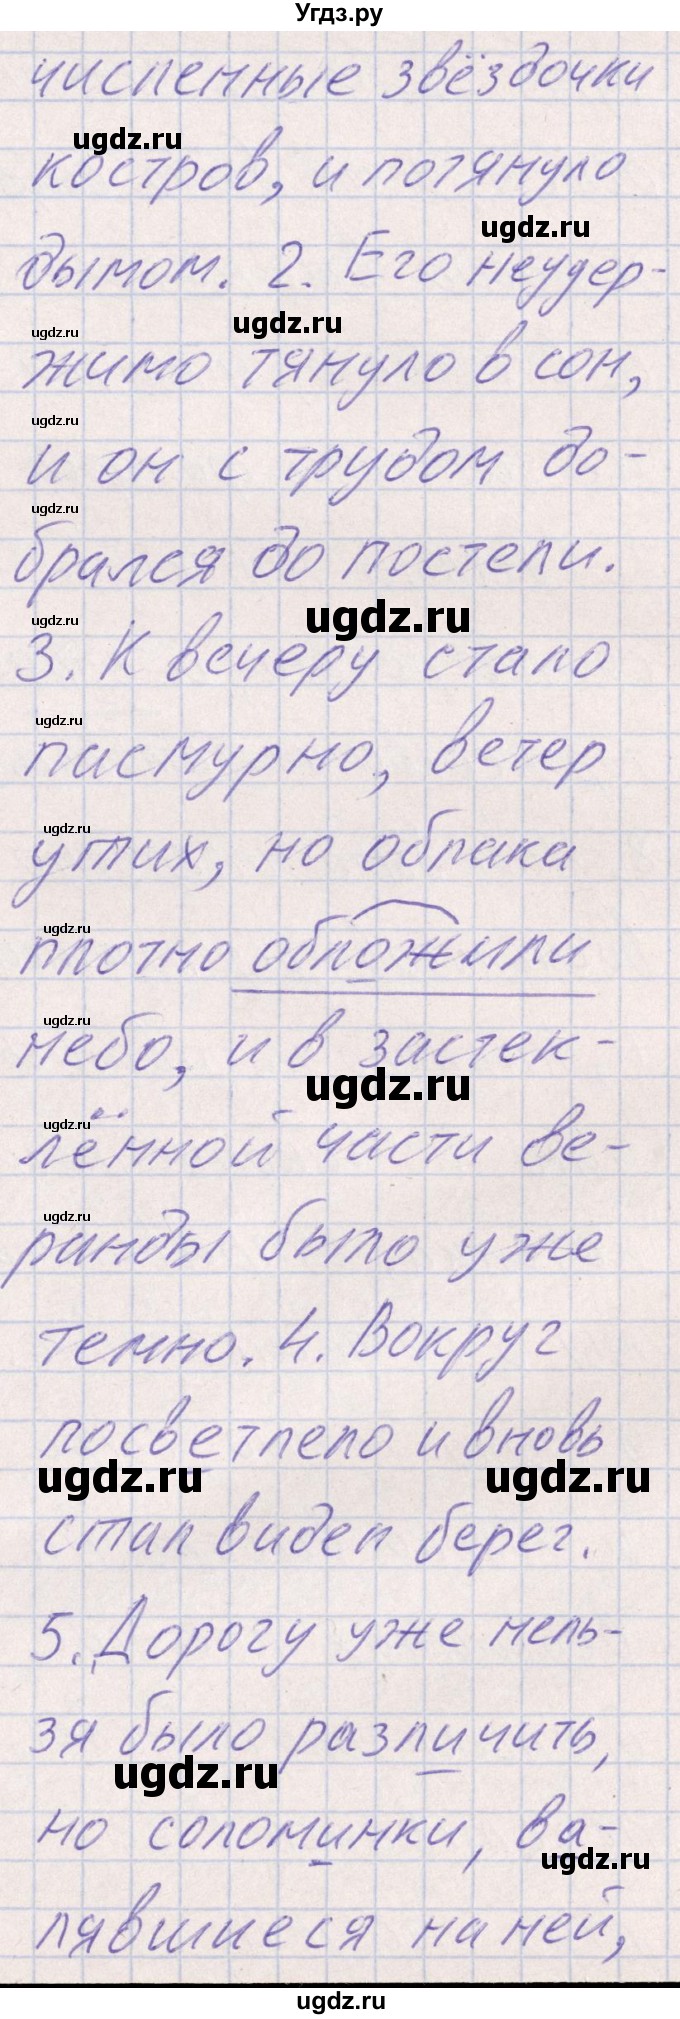 Угдз.ру
численные звёздочки
ugdz.ru
костров, и потянуло
ugdz.ru
дымом. 2. Его неудер-
ugdz.ru
ugdz.ru
жимо тянуло в сон,
ugdz.ru
и он с трудом до-
ugdz.ru
брался до постели.
ugdz.ru
ugdz.ru
3. К вечеру стало
ugdz.ru
пасмурно, ветер
ugdz.ru
утих, но облака
ugdz.ru
плотно обложили
ugdz.ru
небо, и в застек-
ugdz.ru
ugdz.ru
лённой части ве-
ugdz.ru
ранды было уже
темно. 4. Вокруг
посветлело и вновь
ugdz.ru
ugdz.ru
стал виден берег.
5. Дорогу уже нель-
зя было различить,
ugdz.ru
но соломинки, ва-
ugdz.ru
лявшиеся на ней,
ugdz.ru